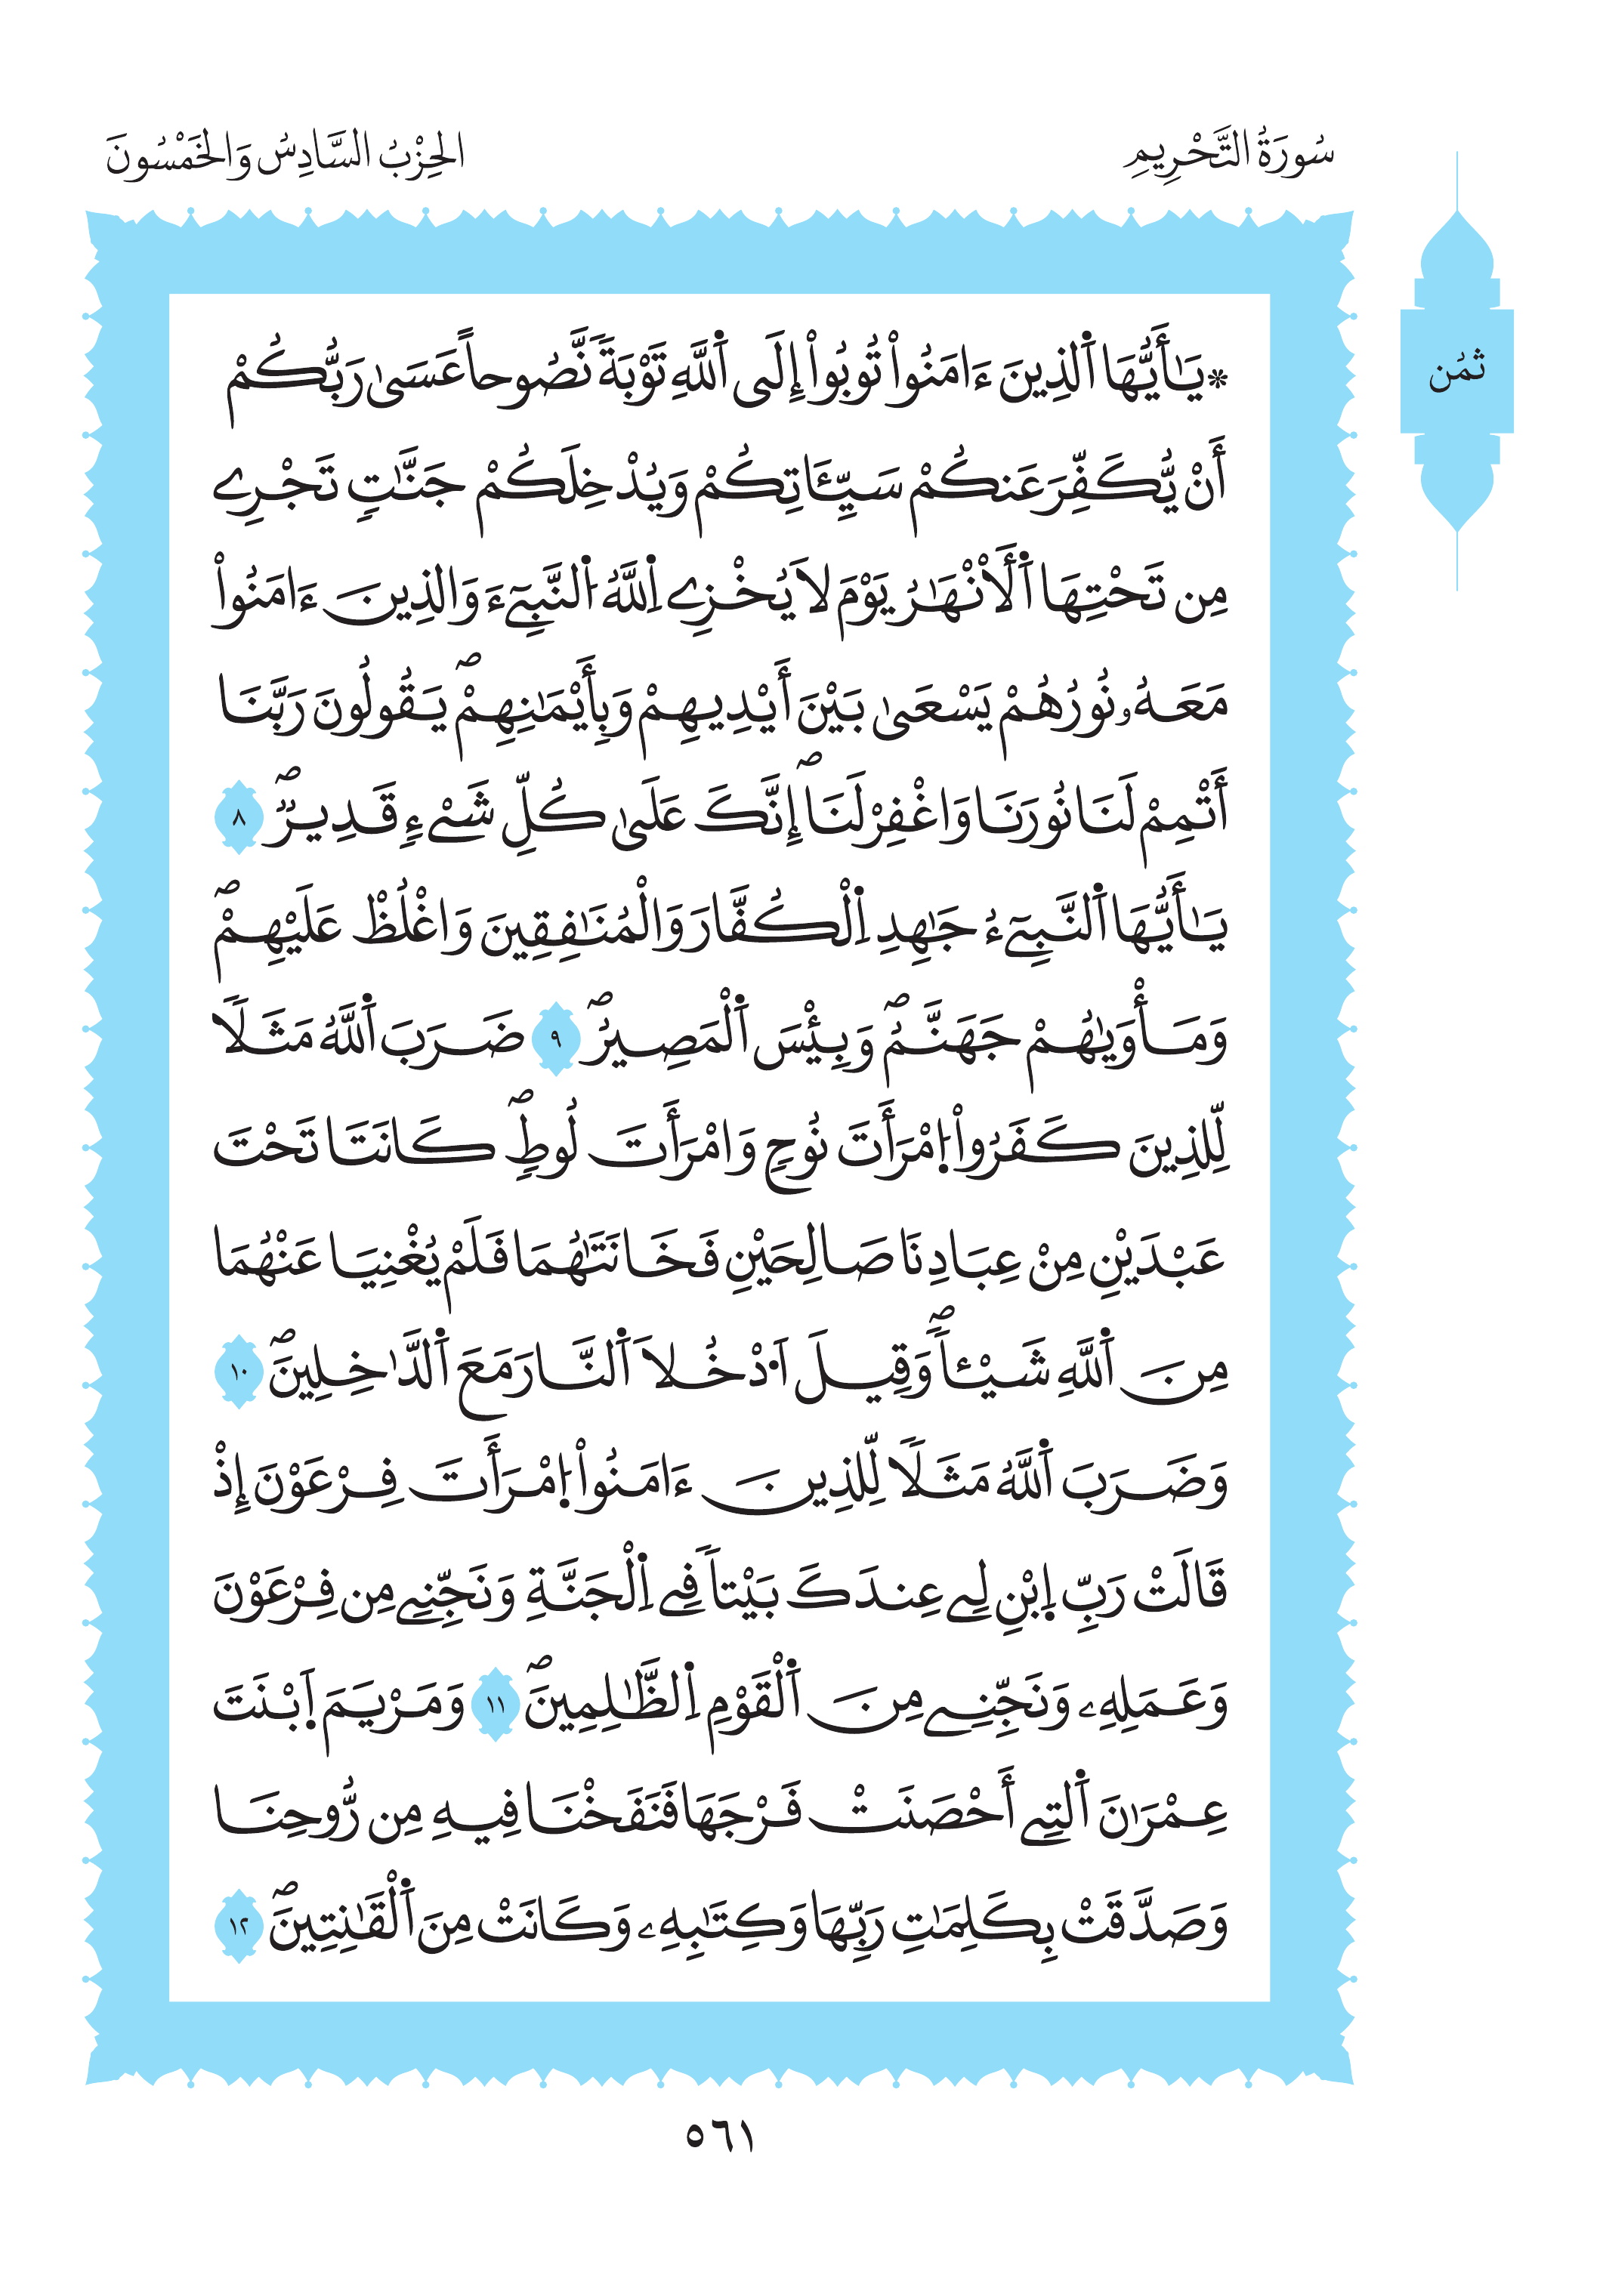 سُورَةُ التَّحْرِيمِ
الحِزْبُ السَّادِسُ وَالخَمْسُونَ
ثمُن
* يَٰأَيُّهَا اَ۬لذِينَ ءَامَنُواْ تُوبُواْ إِلَى اَ۬للَّهِ تَوْبَةٗ نَّصُوحاً عَسَىٰ رَبُّكُمْ
أَنْ يُّكَفِّرَ عَنكُمْ سَيِّـَٔاتِكُمْ وَيُدْخِلَكُمْ جَنَّٰتٖ تَجْرِے
مِن تَحْتِهَا اَ۬لَانْهَٰرُ يَوْمَ لَا يُخْزِے اِ۬للَّهُ اُ۬لنَّبِےٓءَ وَالذِينَ ءَامَنُواْ
مَعَهُۥ نُورُهُمْ يَسْعَىٰ بَيْنَ أَيْدِيهِمْ وَبِأَيْمَٰنِهِمْۖ يَقُولُونَ رَبَّنَا
أَتْمِمْ لَنَا نُورَنَا وَاغْفِرْ لَنَاۖ إِنَّكَ عَلَىٰ كُلِّ شَےْءٖ قَدِيرٞۖ ٨
يَٰأَيُّهَا اَ۬لنَّبِےٓءُ جَٰهِدِ اِ۬لْكُفَّارَ وَالْمُنَٰفِقِينَ وَاغْلُظْ عَلَيْهِمْۖ
وَمَأْوَيٰهُمْ جَهَنَّمُۖ وَبِئْسَ اَ۬لْمَصِيرُۖ ٩ ضَرَبَ اَ۬للَّهُ مَثَلٗا
لِّلذِينَ كَفَرُواْ اُ۪مْرَأَتَ نُوحٖ وَامْرَأَتَ لُوطٖۖ كَانَتَا تَحْتَ
عَبْدَيْنِ مِنْ عِبَادِنَا صَٰلِحَيْنِ فَخَانَتَٰهُمَا فَلَمْ يُغْنِيَا عَنْهُمَا
مِنَ اَ۬للَّهِ شَيْـٔاٗۖ وَقِيلَ اَ۟دْخُلَا اَ۬لنَّارَ مَعَ اَ۬لدَّٰخِلِينَۖ ١٠
وَضَرَبَ اَ۬للَّهُ مَثَلٗا لِّلذِينَ ءَامَنُواْ اُ۪مْرَأَتَ فِرْعَوْنَ إِذْ
قَالَتْ رَبِّ اِ۪بْنِ لِے عِندَكَ بَيْتاٗ فِے اِ۬لْجَنَّةِ وَنَجِّنِے مِن فِرْعَوْنَ
وَعَمَلِهِۦ وَنَجِّنِے مِنَ اَ۬لْقَوْمِ اِ۬لظَّٰلِمِينَۖ ١١ وَمَرْيَمَ اَ۪بْنَتَ
عِمْرَٰنَ اَ۬لتِے أَحْصَنَتْ فَرْجَهَا فَنَفَخْنَا فِيهِ مِن رُّوحِنَا
وَصَدَّقَتْ بِكَلِمَٰتِ رَبِّهَا وَكِتَٰبِهِۦ وَكَانَتْ مِنَ اَ۬لْقَٰنِتِينَۖ ١٢
٥٦١